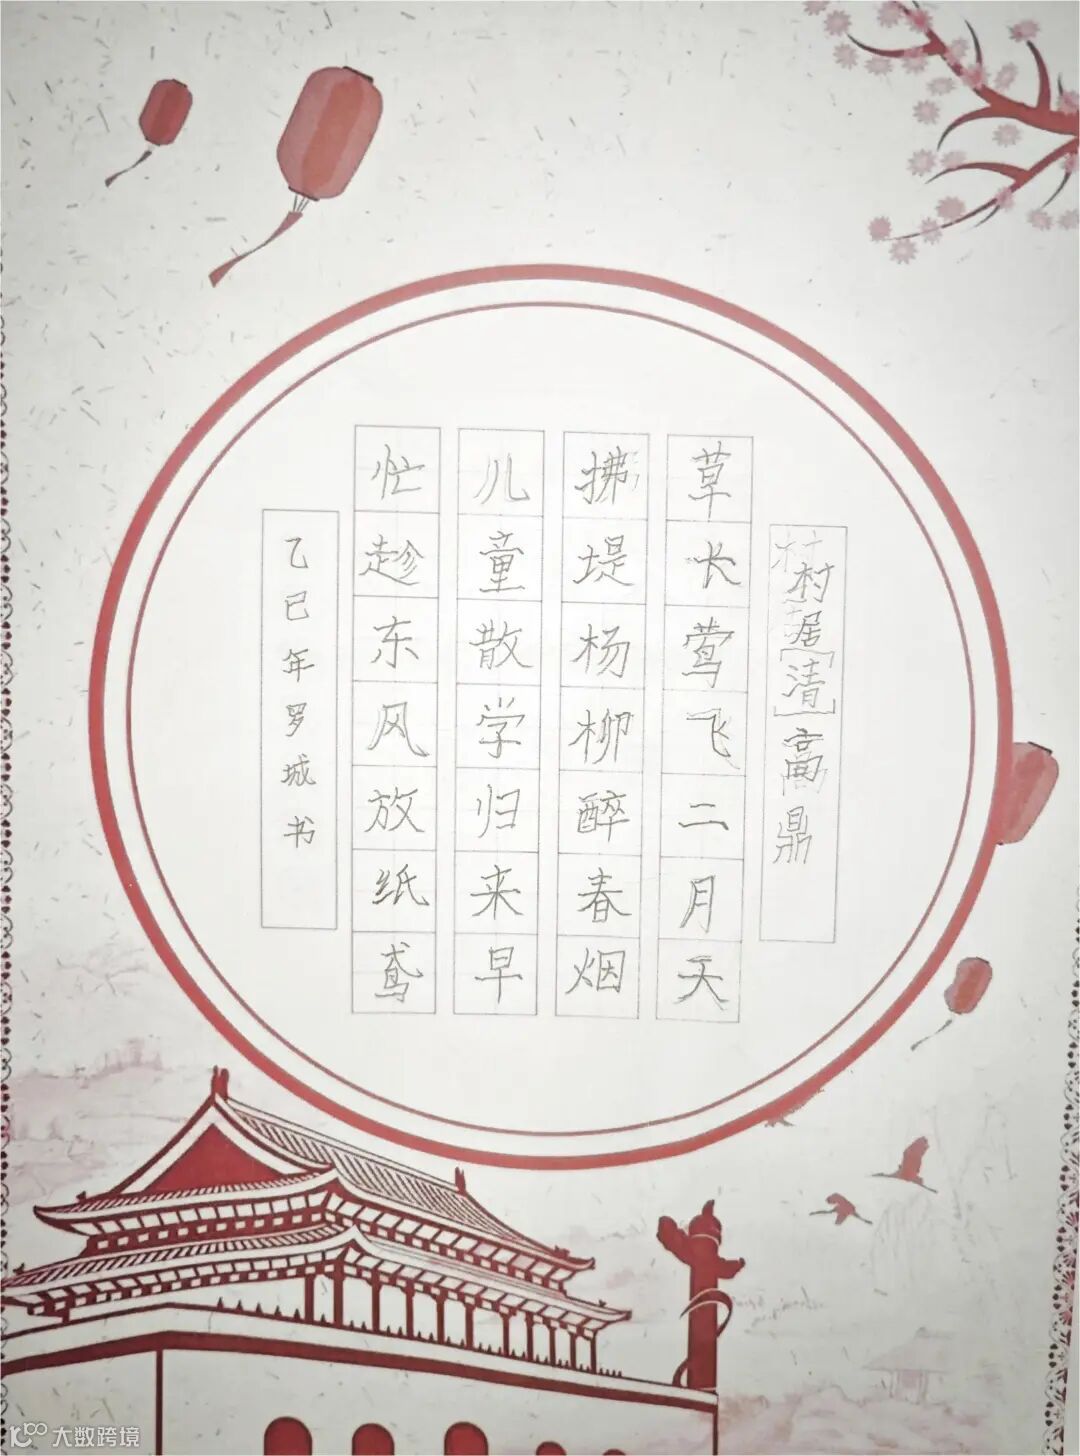 村居[清]高鼎
草长莺飞二月天
拂堤杨柳醉春烟
儿童散学归来早
忙趁东风放纸鸢
乙巳年罗城书
大数跨境